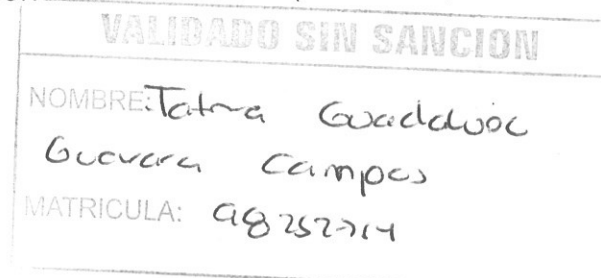 VALIDADO SIN SANCION
NOMBRE: Guadalupe
Guevara Campos
MATRICULA: